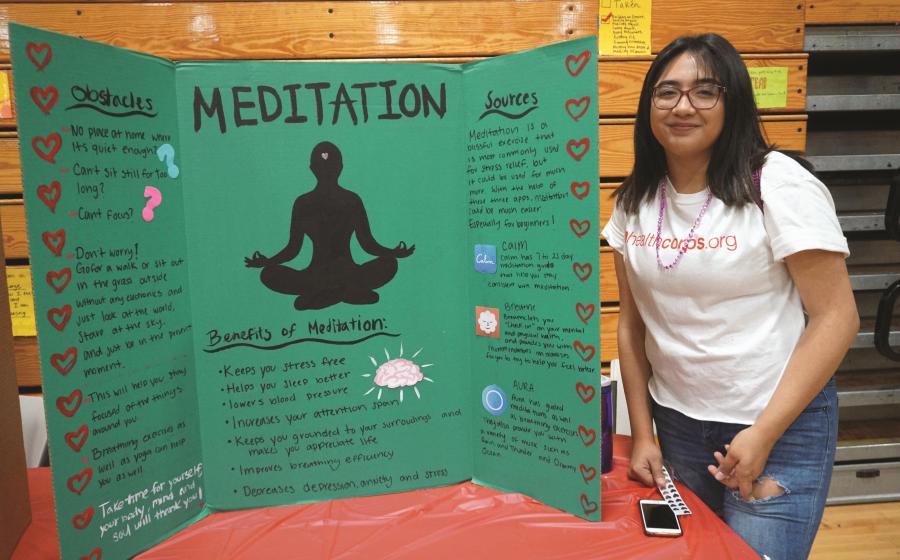 Obstacles
No place at home where
its quiet enough?
Can't sit still for too
long?
Cant focus?
Don't worry!
Go for a walk or sit out
in the grass outside
without any
and
Just look at the world,
Stare at the sky.
and just be in the present
moment.
This will help you stay
focused of the things
around you
Breathing exercises as
well as yoga can help
you as well.
Take time for yourself
your body, mind and
soul will thank you!
MEDITATION
Benefits of Meditation:
• Keeps you stress free
• Helps you sleep better
• lowers blood pressure
• Increases your attention span
• Keeps you grounded to your surroundings and
makes you appreciate life
• Improves breathing efficiency
• Decreases depression, anxiety and stress
Sources
Meditation is a
blissful exercise that
is most commonly used
for stress relief, but
it could be used for much
more. With the help of
these three apps, meditation
could be much easier.
Especially for beginners!
Calm
CALM
Calm has 7 to 21 day
meditation guides
that help you stay
consistent with meditation
BREATHE
Breathe lets you
"check in" on your mental
and physical health,
and provides you with
to try to help you feel better
AURA
Aura has guided
meditations as well
as breathing exercises
provide you with
a variety of music such as
Rain and Thunder and Dreamy
Ocean
healthcorps.org
Taken